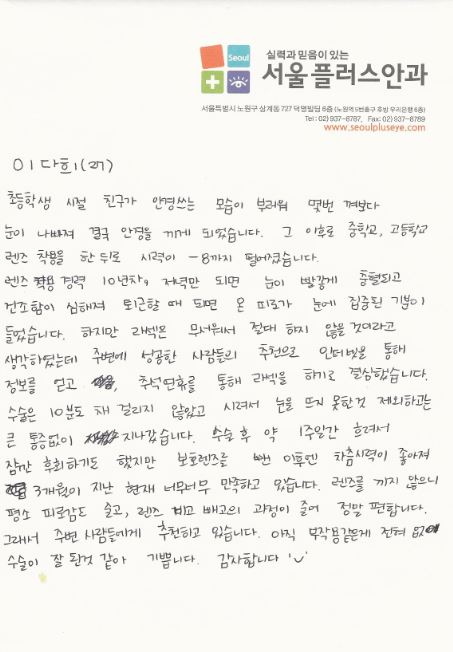 Seoul
실력과 믿음이 있는
서울플러스안과
서울특별시 노원구 상계동 727 덕영빌딩 6층 (노원역 5번출구 후방 우리은행 6층)
Tel : 02) 937-8787, Fax: 02) 937-8789
www.seoulpluseye.com
이다희 (27)
초등학생 시절 친구가 안경쓰는 모습이 부러워 몇번 껴보다
눈이 나빠져 결국 안경을 끼게 되었습니다. 그 이후로 중학교, 고등학교
렌즈 착용을 한 뒤로 시력이 -8까지 떨어졌습니다.
렌즈 경력 10년차, 저녁만 되면 눈이 빨갛게 충혈되고
건조함이 심해져 퇴근할 때 되면 온 피로가 눈에 집중된 기분이
들었습니다. 하지만 라섹은 무서워서 절대 하지 않을 것이라고
생각하였는데 주변에 성공한 사람들의 추천으로 인터넷을 통해
정보를 얻고, 추석연휴를 통해 라섹을 하기로 결심했습니다.
수술은 10분도 채 걸리지 않았고 시려서 눈을 뜨지 못한것 제외하고는
큰 통증없이 지나갔습니다. 수술 후 약 1주일간 흐려서
잠깐 후회하기도 했지만 보호렌즈를 뺀 이후엔 차츰시력이 좋아져
3개월이 지난 현재 너무너무 만족하고 있습니다. 렌즈를 끼지 않으니
평소 피로감도 줄고, 렌즈 끼고 빼고의 과정이 줄어 정말 편합니다.
그래서 주변 사람들에게 추천하고 있습니다. 아직 부작용같은게 전혀 없어
수술이 잘 된것 같아 기쁩니다. 감사합니다 'ᴗ'